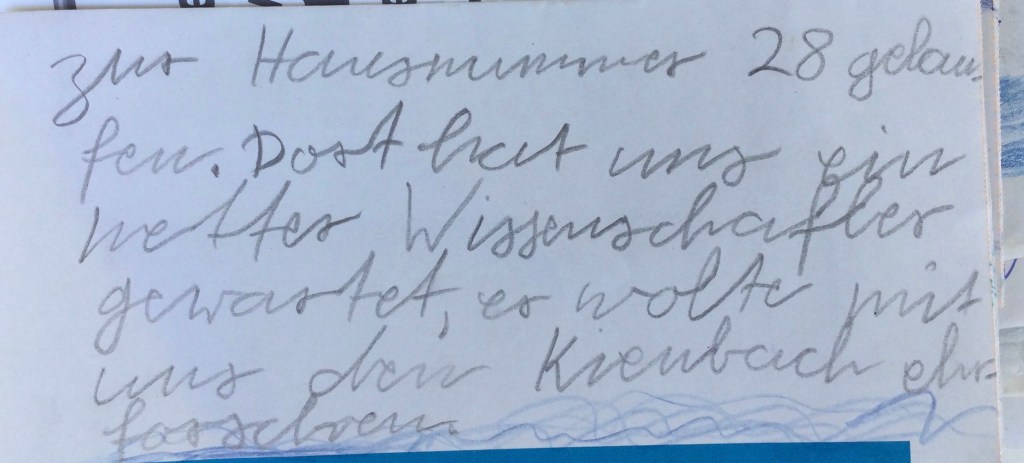 zur Hausnummer 28 gelau-
fen. Dort hat uns ein
netter Wissenschafler
gewartet, er wolte mit
uns den Krenbach ehr-
forschren.